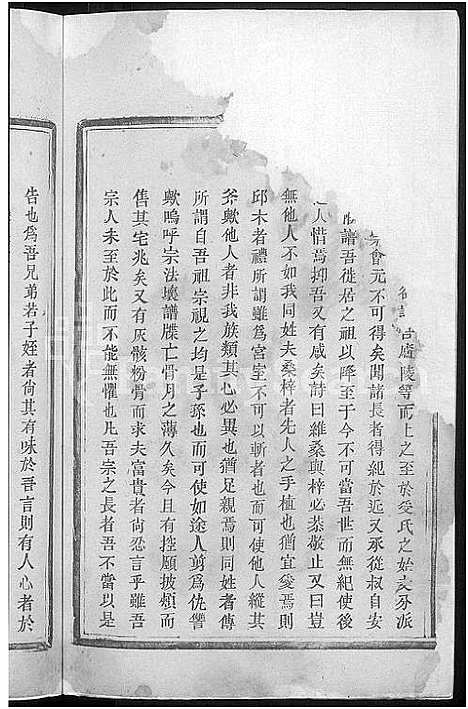 自吉廬陵等而上之至於受氏之始支分派
會元不可得矣聞諸長者得紀於近又承從叔自安
譜吾徙居之祖以降至于今不可當吾世而無紀使後
人惜焉抑吾又有感矣詩曰維桑與梓必恭敬止又曰豈
無他人不如我同姓夫桑梓者先人之手植也猶宜愛焉則
邱木者禮所謂雖爲宮室不可以斬者也而可使他人縱其
斧歟他人者非我族類其心必異也猶足親焉則同姓者傳
所謂自吾祖宗視之均是子孫也而可使如途人剪爲仇讐
歟嗚呼宗法壞譜牒亡骨月之薄久矣今且有控願披頰而
售其宅兆矣又有灰骸粉骨而求夫富貴者尙忍言乎雖吾
宗人未至於此而不能無懼也凡吾宗之長者吾不當以是
告也爲吾兄弟若子姪者尙其有味於吾言則有人心者於